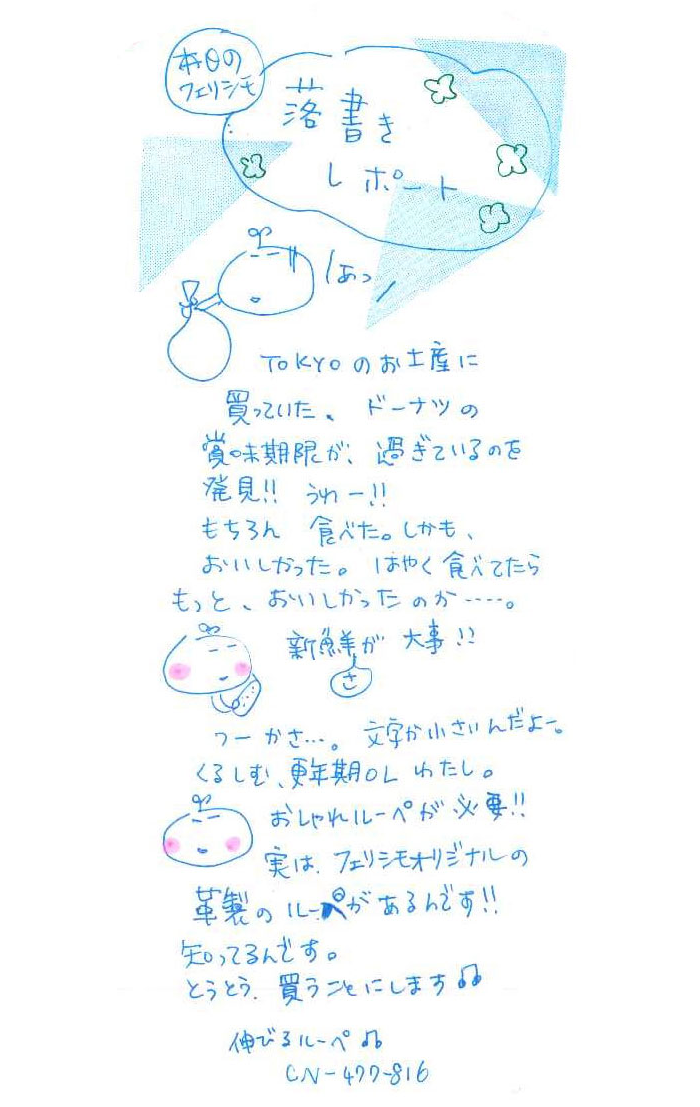 本日の
フェリシモ
落書き
レポート
あっ
TOKYOのお土産に
買っていた、ドーナツの
賞味期限が、過ぎているのを
発見!! うわー!!
もちろん 食べた。しかも、
おいしかった。 はやく食べてたら
もっと、おいしかったのか……。
新鮮が 大事!!
さ
つーかさ…。文字が小さいんだよー。
くるしむ、更年期OL わたし。
おしゃれルーペが必要!!
実は、フェリシモオリジナルの
革製のルーペがあるんです!!
知ってるんです。
とうとう、買うことにします♫
伸びるルーペ♫
CN-477-816